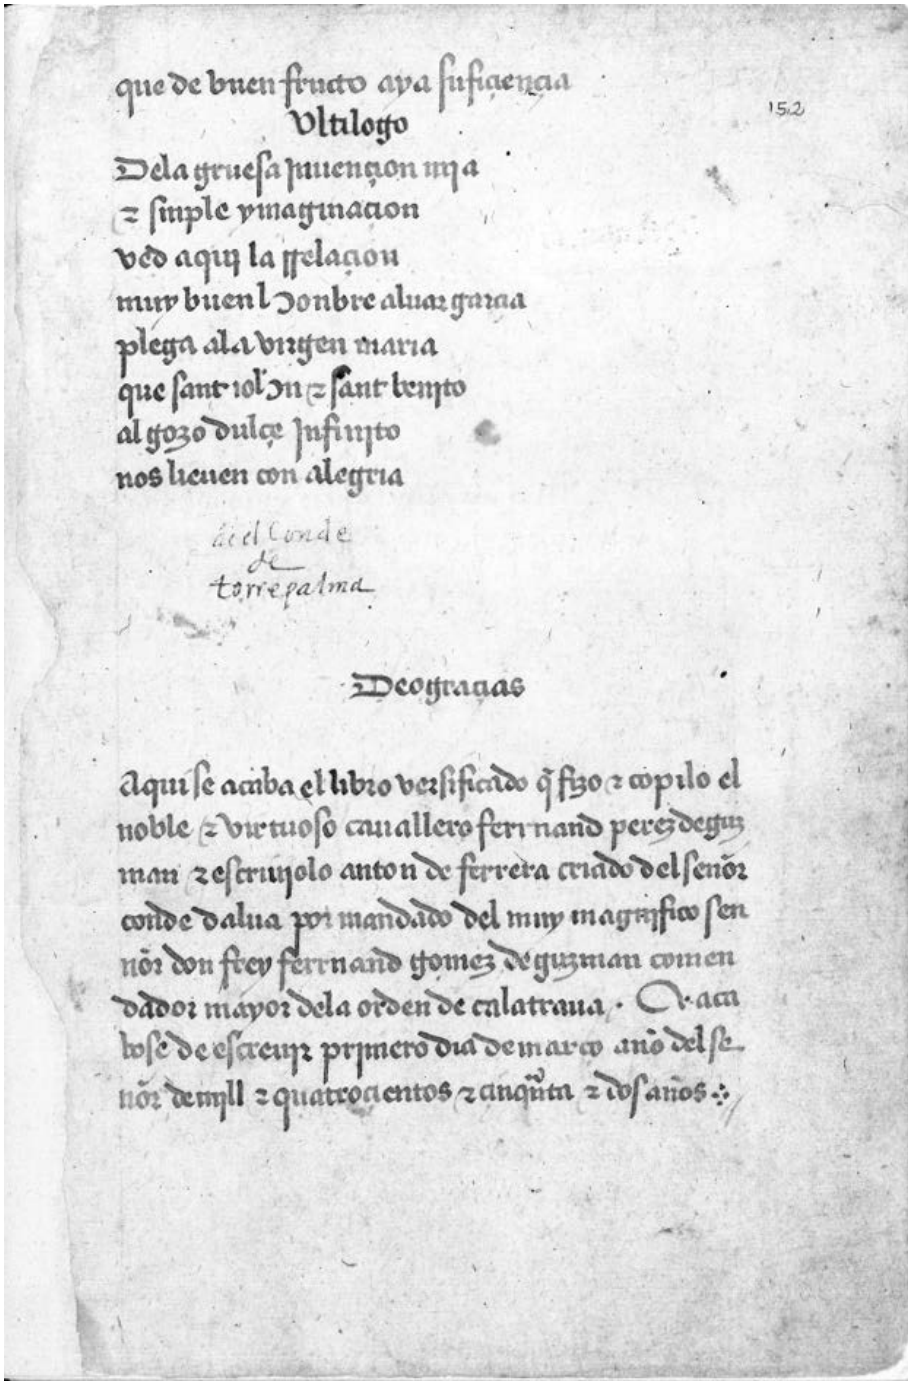 que de buen fructo aya sufiçiençia
152
Vltilogo
Dela gruesa Jnuençion mja
τ sinple ymaginaçion
ved aquj la rrelaçion
muy buen honbre aluar garçia
plega ala virgen maria
que sant iohn τ sant benjto
al gozo dulçe Jnfinjto
nos lieuen con alegria
del Conde
de
torrepalma
Deograçias
Aqui se acaba el libro versificado q̃ fizo τ copilo el
noble τ virtuoso cauallero ferrnand perez de guz
man τ escriujolo anton de ferrera criado del señor
conde dalua por mandado del muy magnjfico sen
ñor don frey ferrnando gomez de guzman comen
dador mayor dela orden de calatraua. aca
bose de escreuir primero dia de março año del se
ñor de mjll τ quatroçientos τ çinqũta τ dos años